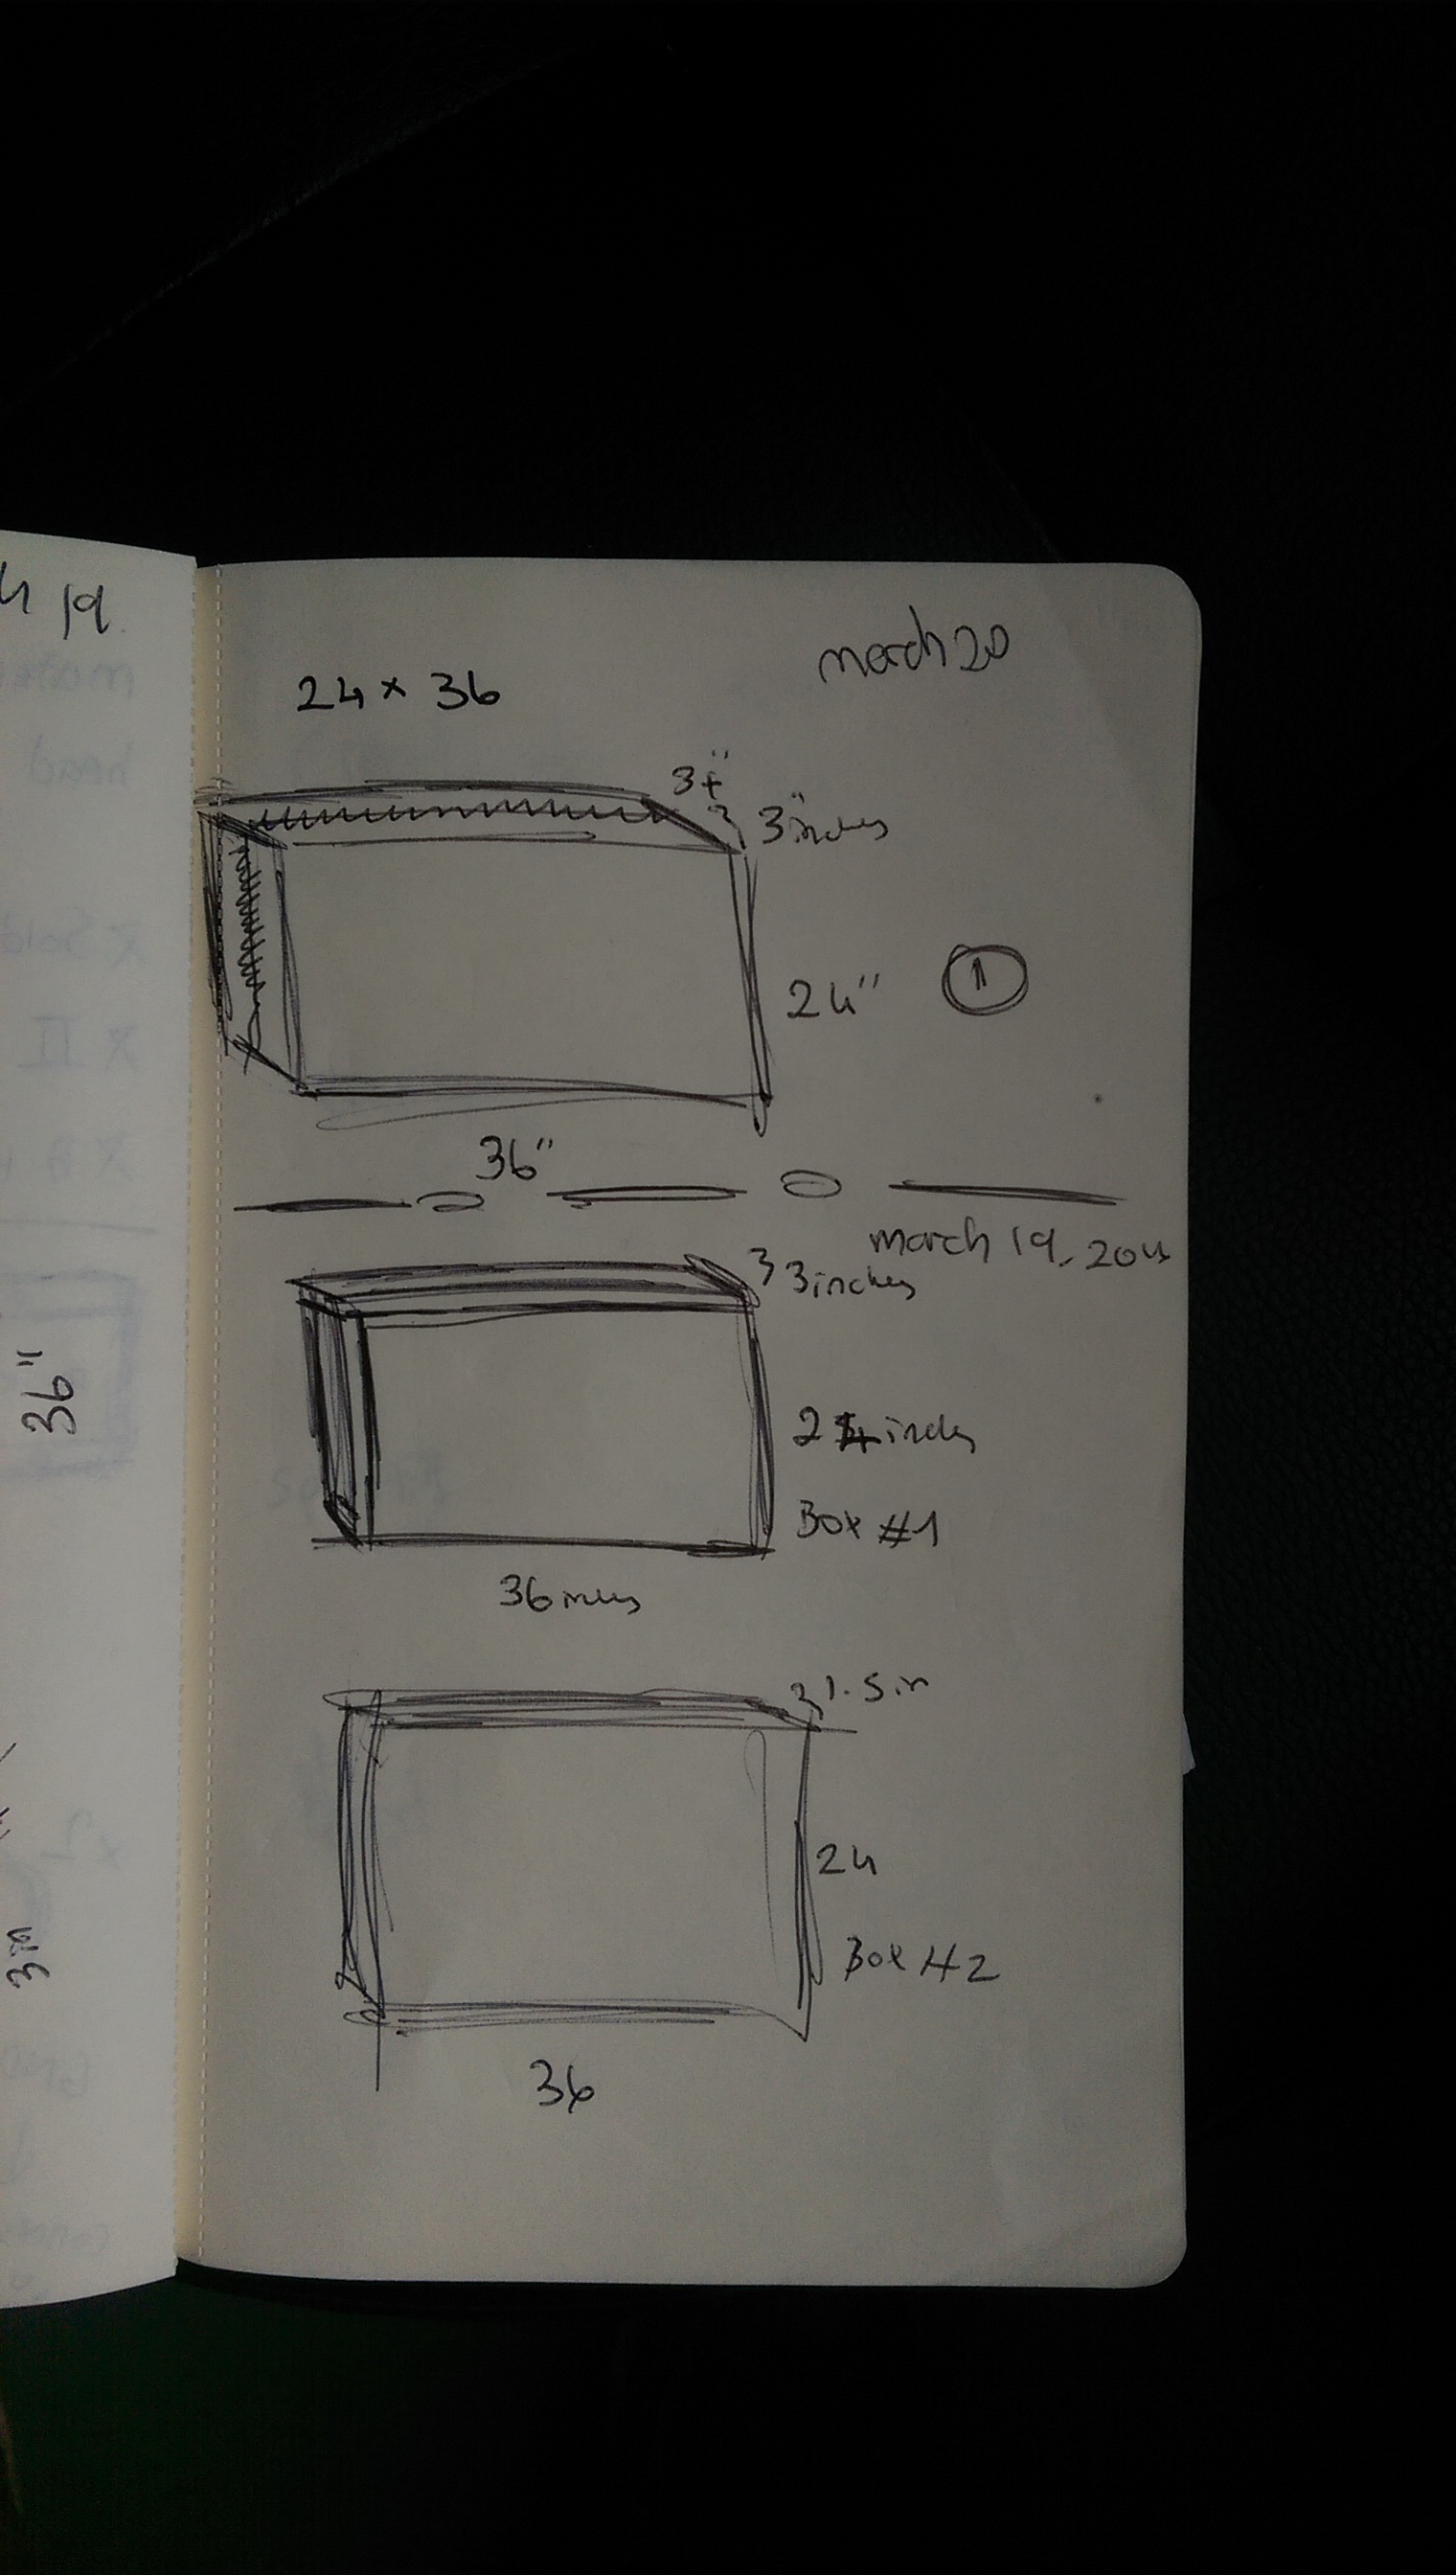 19
36"
3in
march 20
24 x 36
3+"
3" inches
24"
1
36"
march 19.
3 inches
24 inches
Box #1
36 inches
1.5 in
24
Box #2
36